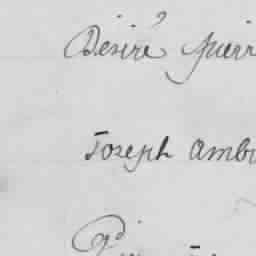 Désiré pierr
Joseph ambr